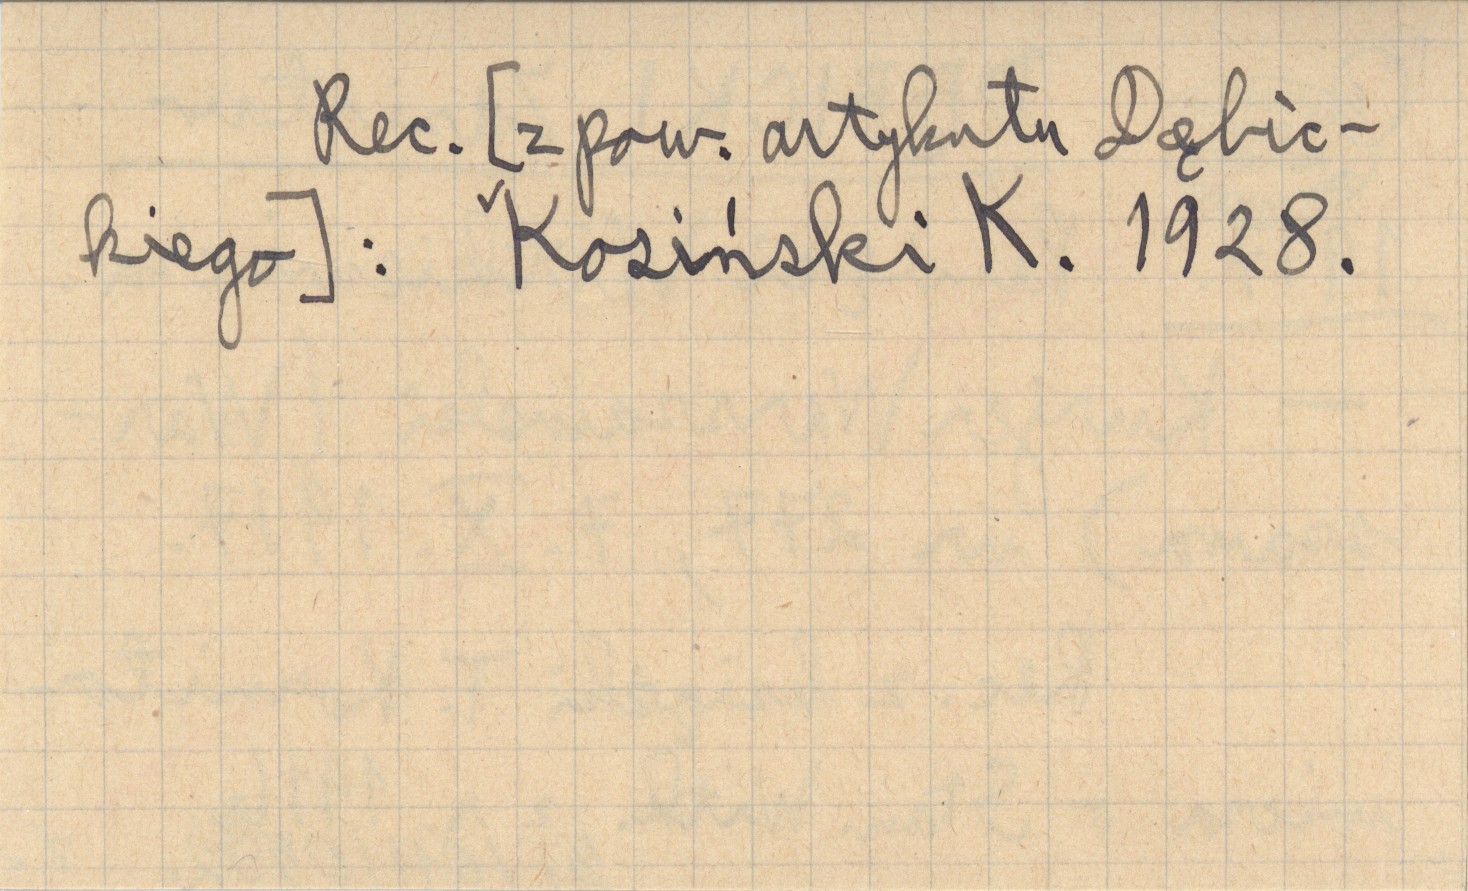 Rec. [z pow. artykułu Dębic-
kiego]: Kosiński K. 1928.